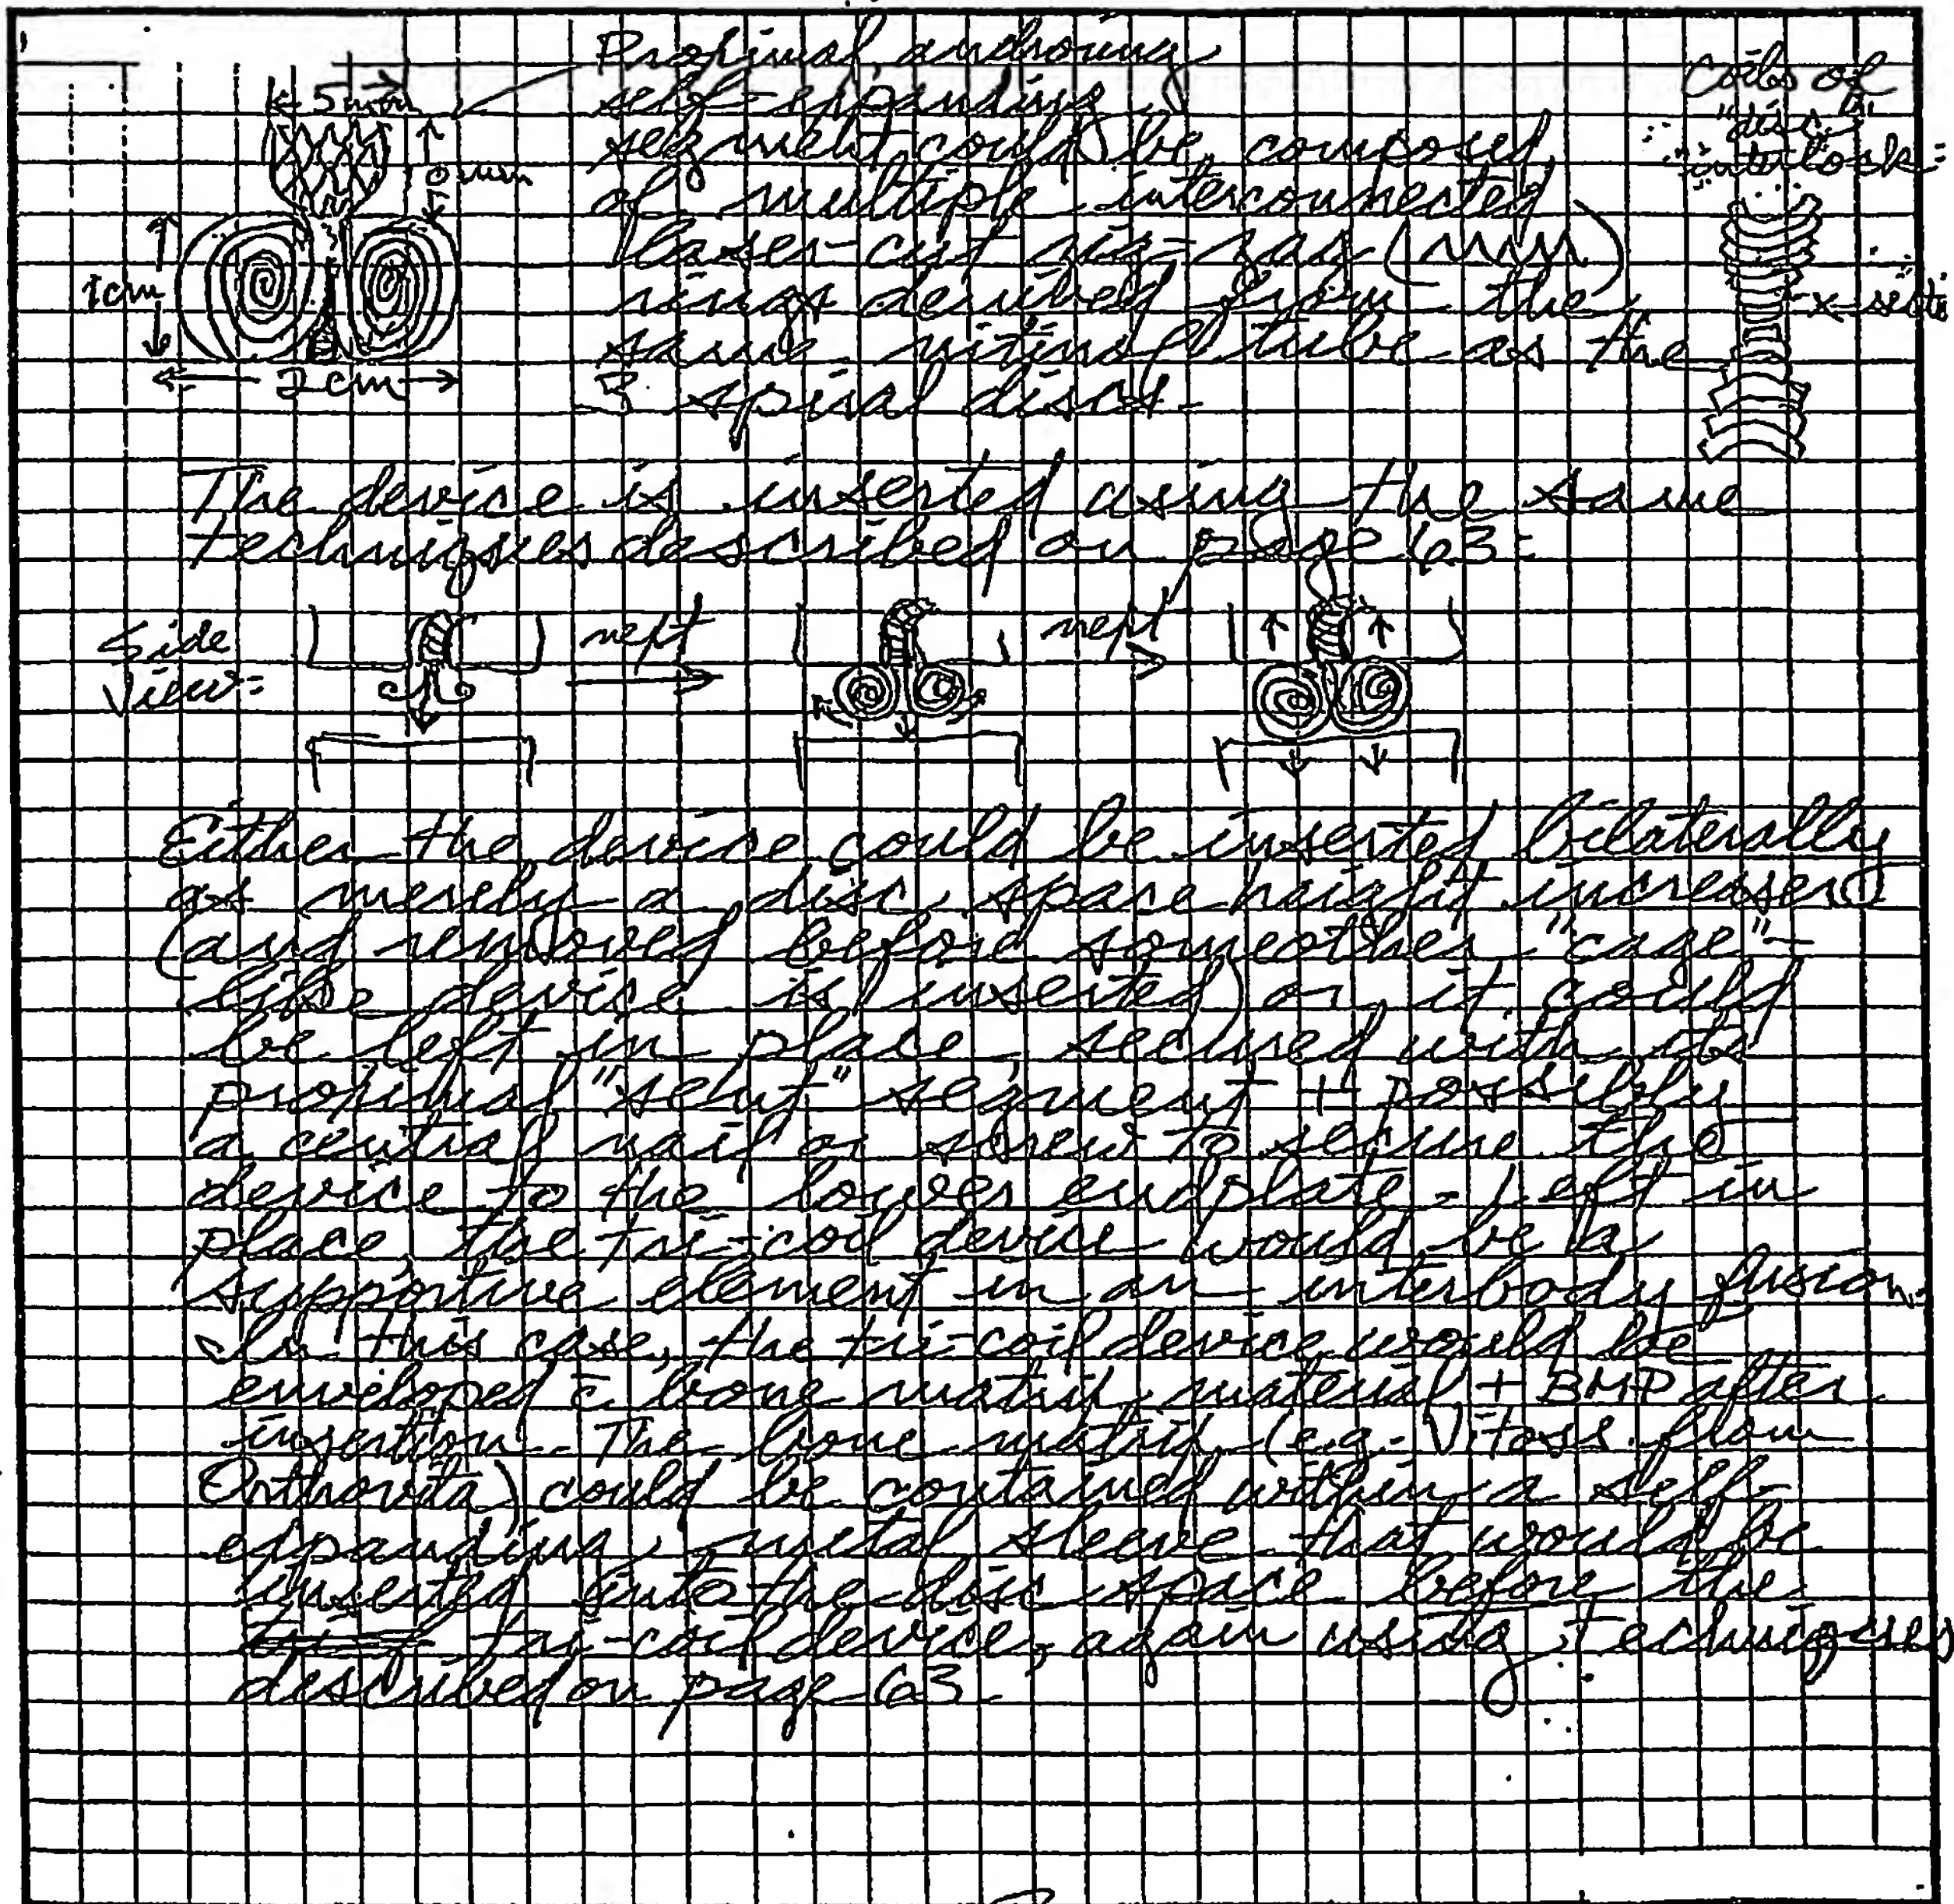 Proximal, anchoring
self-expanding
segment could be composed
of multiple interconnected
laser-cut zig-zag (MM)
rings derived from the
same nitinol tube as the
3 spiral discs.
5mm
1cm
2cm
Coils of
"disc"
interlock:
The device is inserted using the same
techniques described on page 63:
Side
View:
next
next
Either the device could be inserted bilaterally
as merely a disc space height increaser
(and removed before some other "cage"-
like device is inserted) or it could
be left in place, secured with its
proximal "stent" segment + possibly
a central nail or screw to secure the
device to the lower endplate. Left in
place, the tri-coil device would be a
supportive element in an interbody fusion.
In this case, the tri-coil device would be
enveloped c̄ bone matrix material + BMP after
insertion. The bone matrix (e.g. Vitoss from
Orthovita) could be contained within a self-
expanding, metal sleeve that would be
inserted into the disc space before the
tri-coil device, again using techniques
described on page 63.